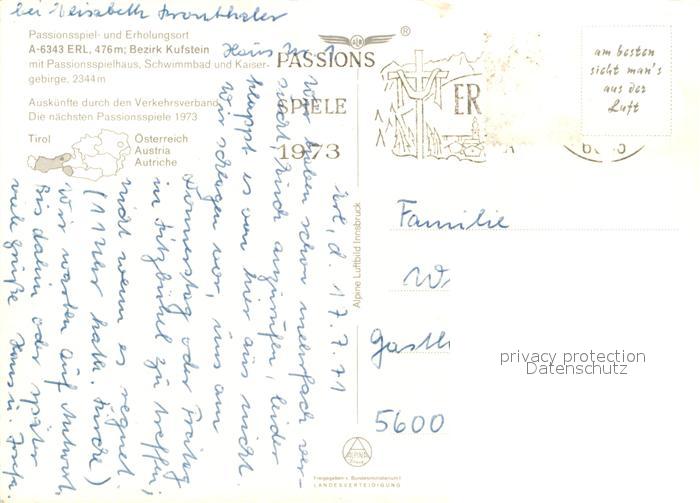 bei Elisabeth Kronthaler
Haus Nr. 1
Passionsspiel- und Erholungsort
A-6343 ERL, 476 m; Bezirk Kufstein
mit Passionsspielhaus, Schwimmbad und Kaiser-
gebirge, 2344 m
Auskünfte durch den Verkehrsverband
Die nächsten Passionsspiele 1973
Tirol
Österreich
Austria
Autriche
PASSIONS
SPIELE
1973
ER
®
am besten
sieht man's
aus der
Luft
Erl, d. 17.7.71
Wir haben schon mehrfach ver-
sucht, Euch anzurufen, leider
klappt es von hier aus nicht.
Wir schlagen vor, uns am
Donnerstag oder Freitag
in Kitzbühel zu treffen,
nicht wenn es regnet.
(11 Uhr kath. Kirche)
Wir warten auf Antwort.
Bis dahin oder später
viele Grüße
Alpine Luftbild Innsbruck
Familie
W
Gasth
5600
privacy protection
Datenschutz
ALPINE
Freigegeben v. Bundesministerium f.
LANDESVERTEIDIGUNG